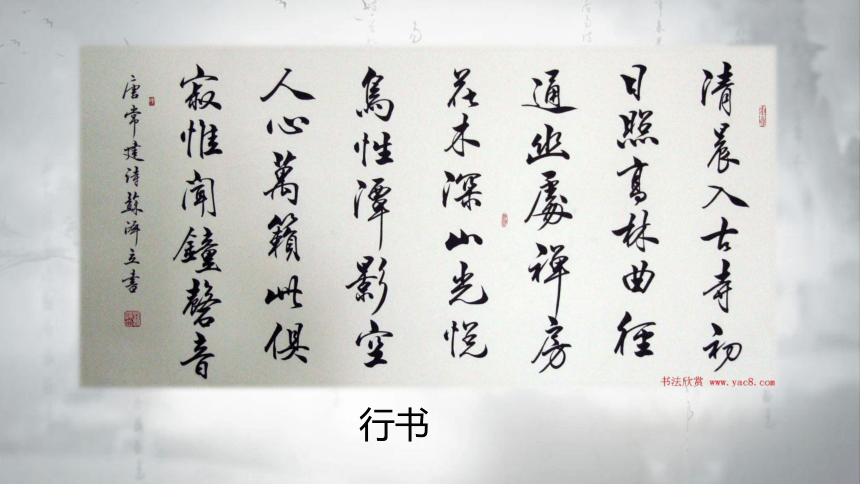 清晨入古寺初
日照高林曲径
通幽處禅房
花木深山光悦
鳥性潭影空
人心萬籟此俱
寂惟聞鐘磬音
唐常建诗蘇泙立書
书法欣赏 www.yac8.com
行书